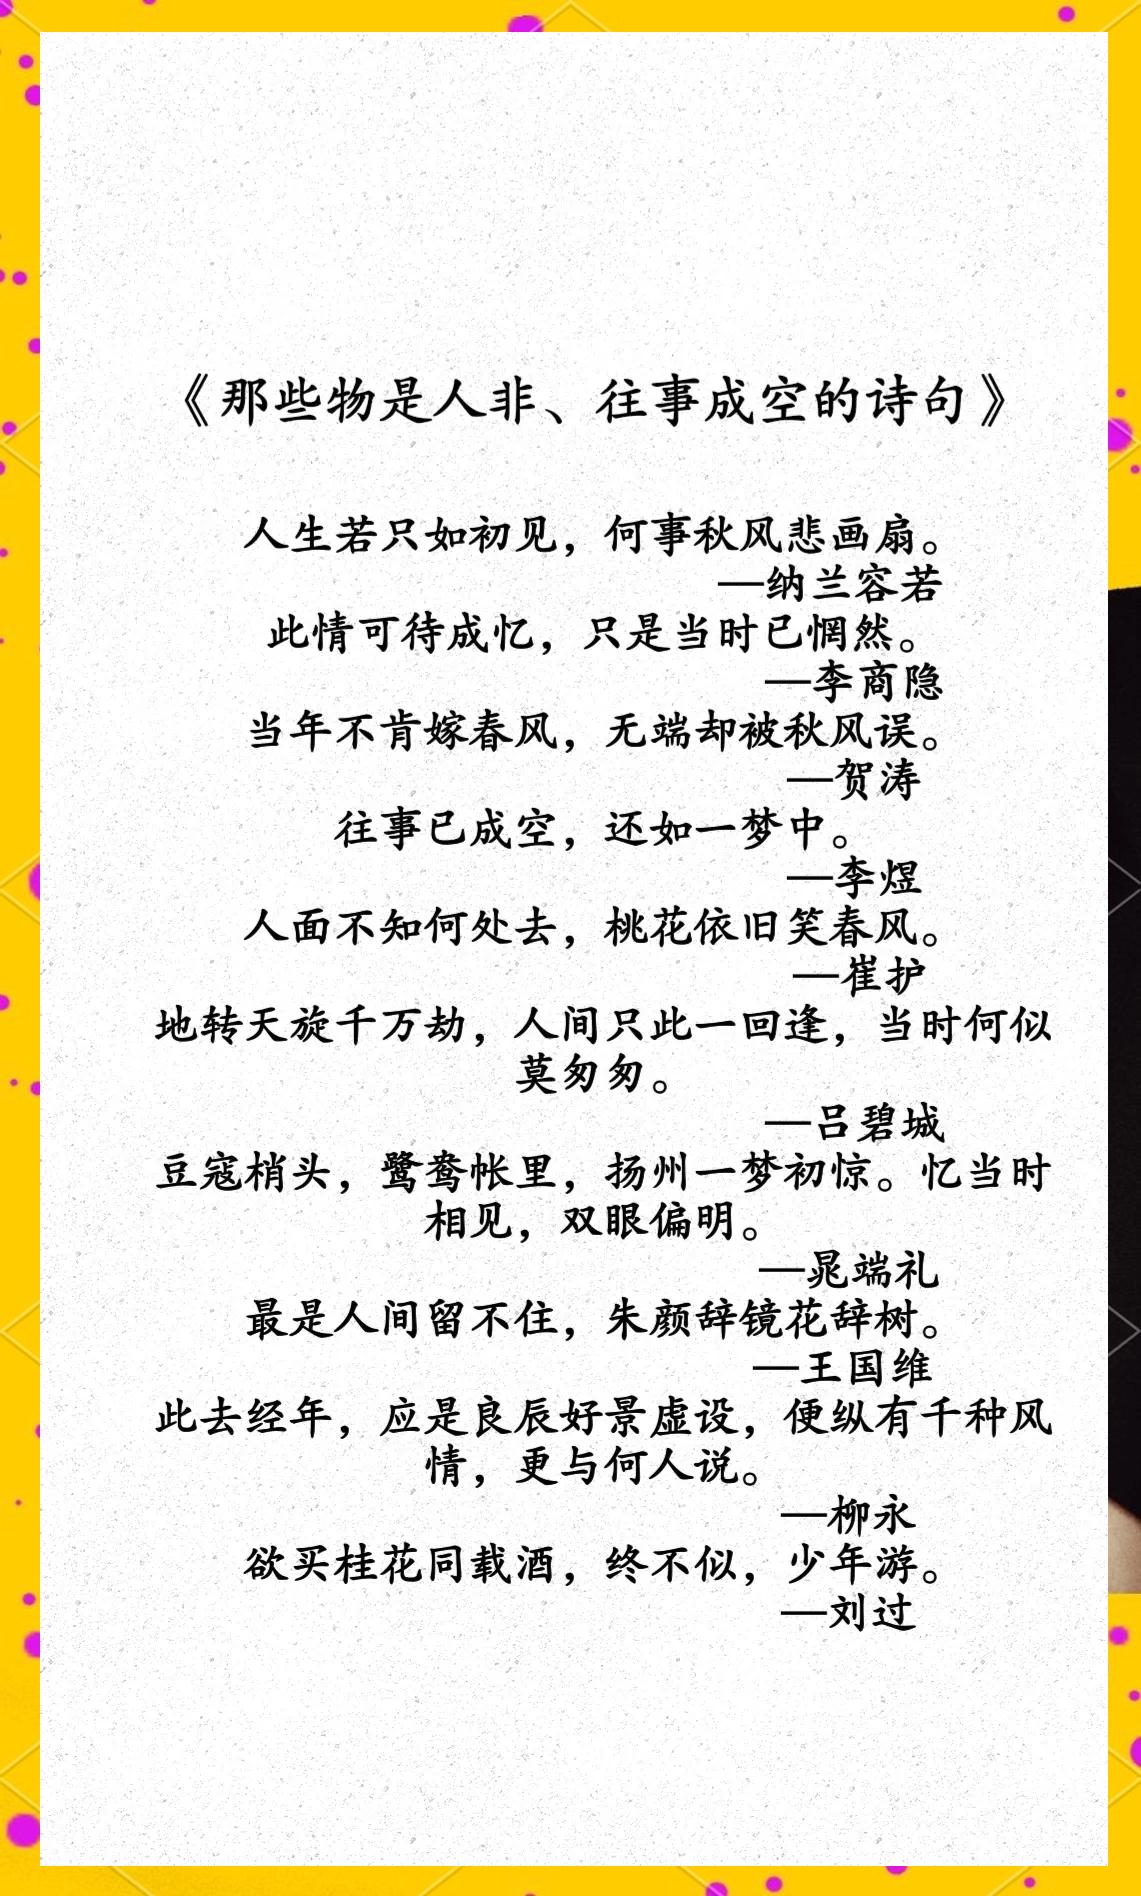 《那些物是人非、往事成空的诗句》
人生若只如初见，何事秋风悲画扇。
—纳兰容若
此情可待成忆，只是当时已惘然。
—李商隐
当年不肯嫁春风，无端却被秋风误。
—贺涛
往事已成空，还如一梦中。
—李煜
人面不知何处去，桃花依旧笑春风。
—崔护
地转天旋千万劫，人间只此一回逢，当时何似
莫匆匆。
—吕碧城
豆寇梢头，鹭鸯帐里，扬州一梦初惊。忆当时
相见，双眼偏明。
—晁端礼
最是人间留不住，朱颜辞镜花辞树。
—王国维
此去经年，应是良辰好景虚设，便纵有千种风
情，更与何人说。
—柳永
欲买桂花同载酒，终不似，少年游。
—刘过